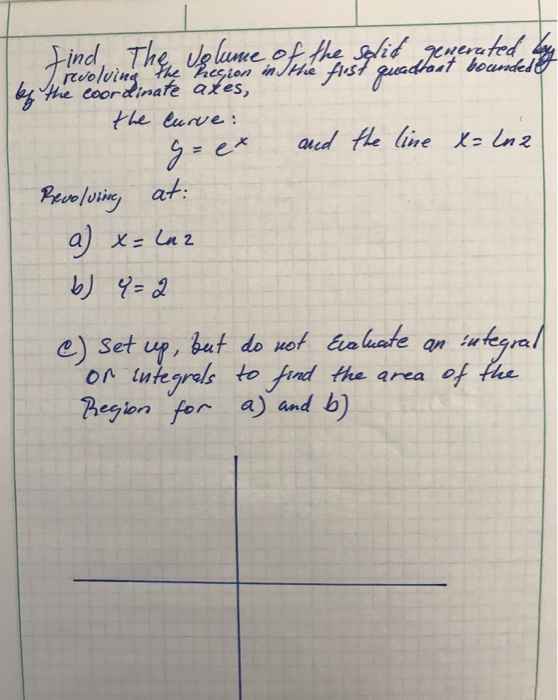 Find The Volume of the solid generated by
revolving the Region in the first quadrant bounded
by the coordinate axes,
the curve:
y = e^x and the line x = ln 2
Revolving at:
a) x = ln 2
b) y = 2
c) Set up, but do not Evaluate an integral
or integrals to find the area of the
Region for a) and b)